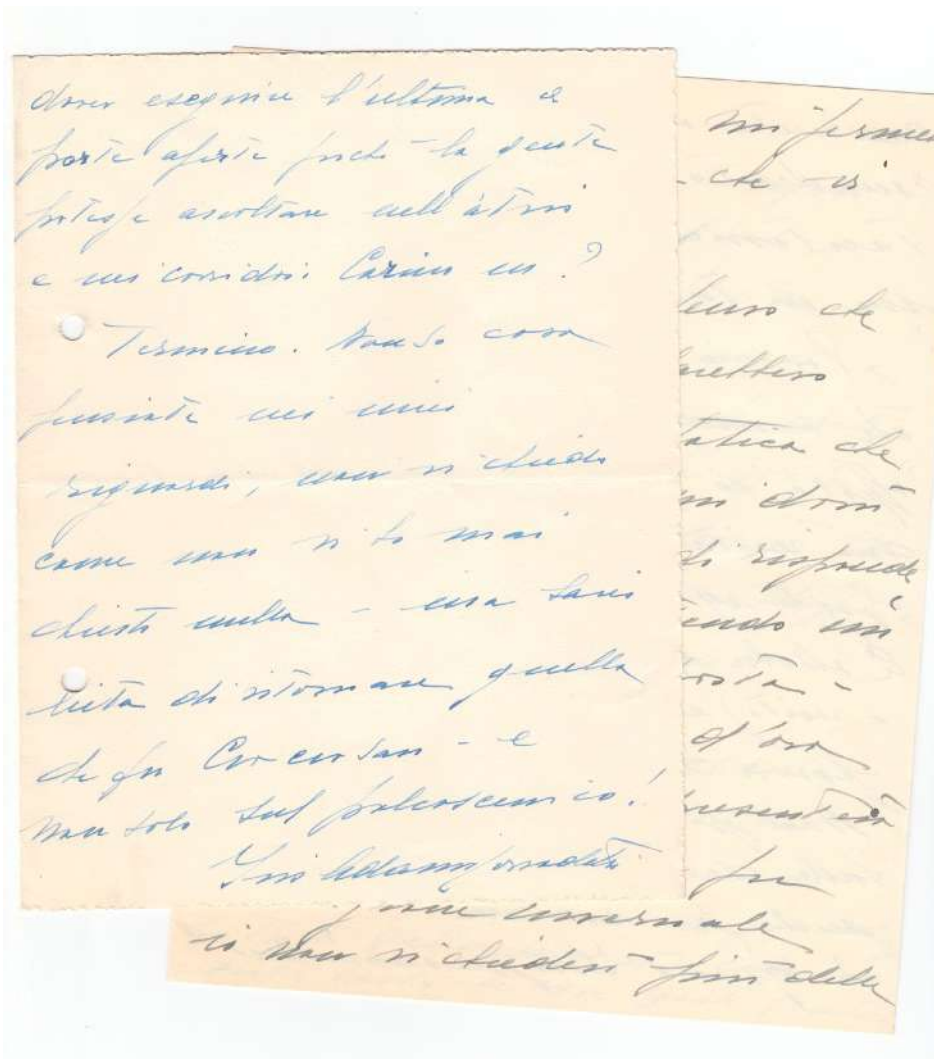 dover eseguire l'ultima a
porte aperte perché la gente
potesse ascoltare nell'atrio
e nei corridoi. Carino no?
Termino. Non so cosa
pensiate nei miei
riguardi, non vi chiedo
come non vi ho mai
chiesto nulla - ma sarei
lieta di ritornare quella
che fu - e
non solo sul palcoscenico!
Iris Adami Corradetti
mi
che vi
che
che
di risponde
un
d'oro
fu
invernale
io non vi chiederei più della